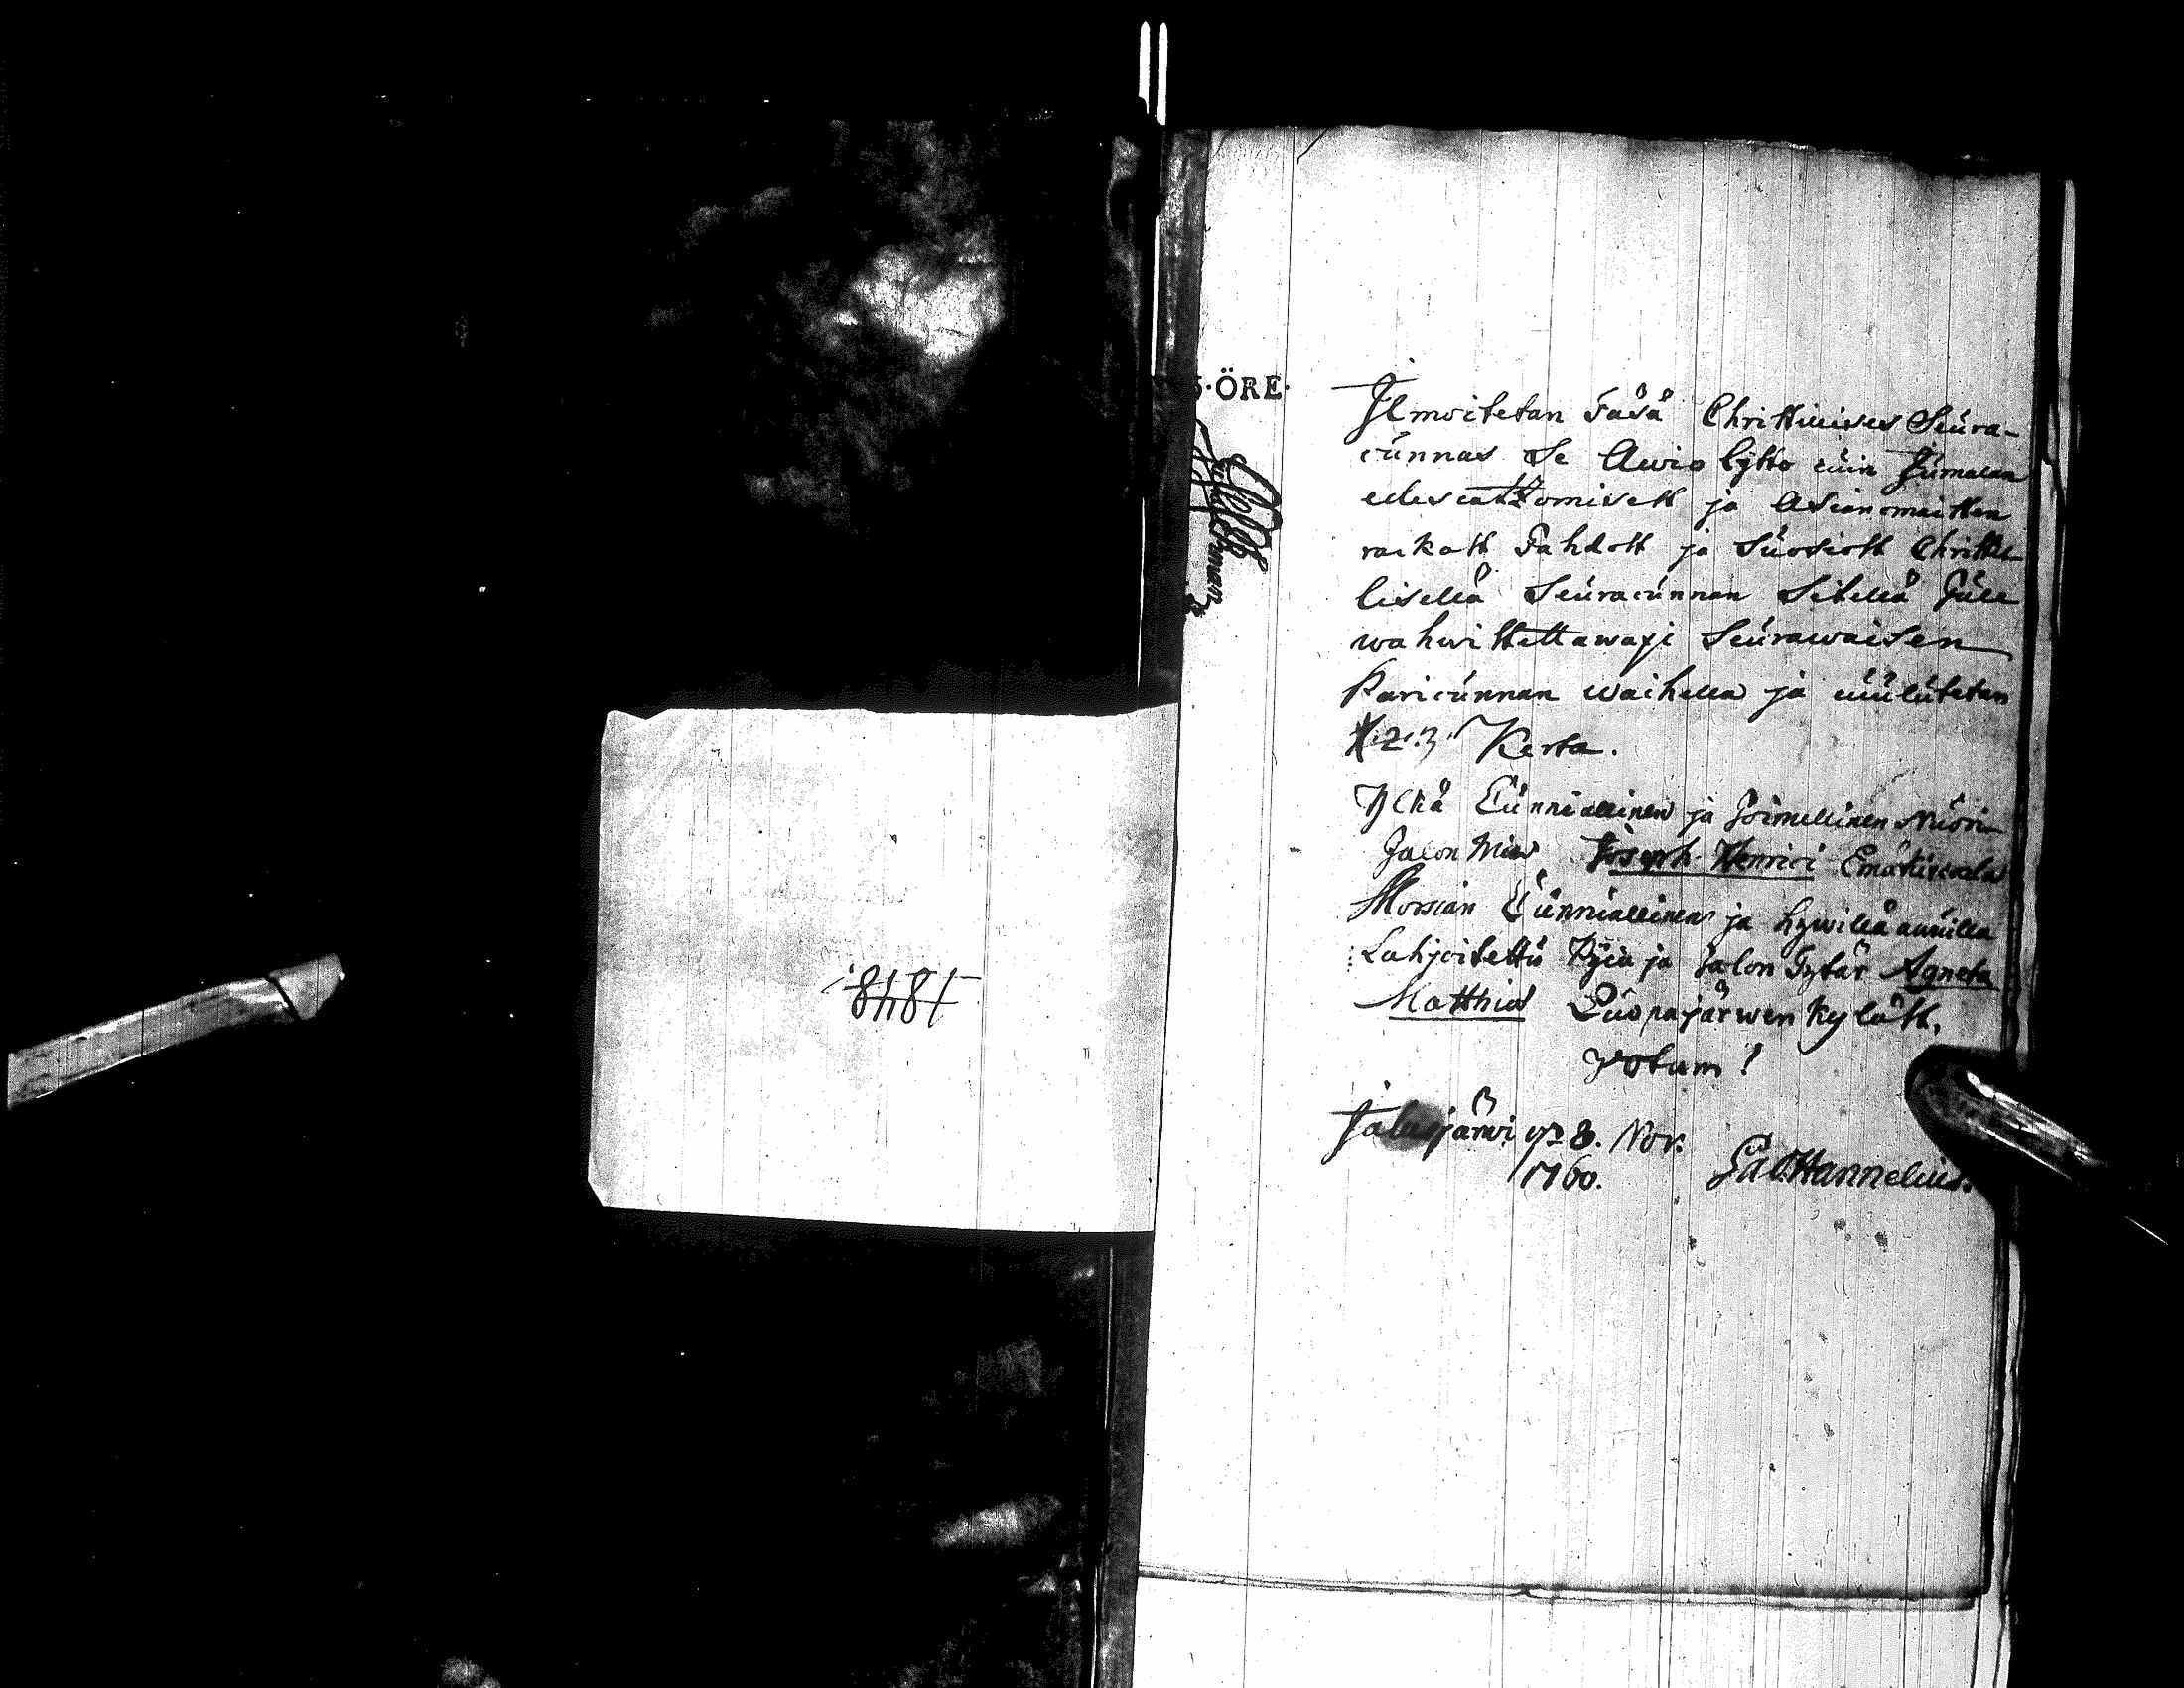 ÖRE
Jlmoitetan Täsä Christillises Seura-
cunnas Se Awio lijtto cuin Jumalan
edescattzomisest ja Asianomaitten
rackast Tahdost ja Suosiost Christil-
lisellä Seuracunnan Sitellä Jälle
wahwistettawaxi Seurawaisen
Paricunnan waihella ja cuulutetan
1. 2. 3. Kerta.
Ylkä Cunniallinen ja Toimellinen Nuori-
Jalon Mies Joseph Henrici
Morsian Cunniallinen ja hywillä awuilla
Lahjoitettu Pijca ja Jalon Tytär Agneta
Matthiæ Luopajärwen kyläst.
Votum!
Jalasjärwi 8. Nov.
1760. Hannelius.
1848.